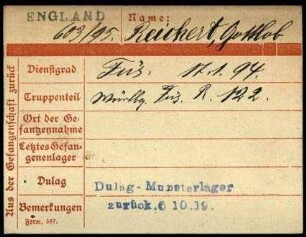 ENGLAND Name:
603/95. Reichert, Gottlob
Dienstgrad Füs. 17.1.94.
Truppenteil Württbg. Füs. R. 122.
Ort der Ge-
fangennahme
Letztes Gefan-
genenlager
Dulag Dulag-Munsterlager
zurück, 6 10.19.
Bemerkungen
Form. 587.
Aus der Gefangenschaft zurück